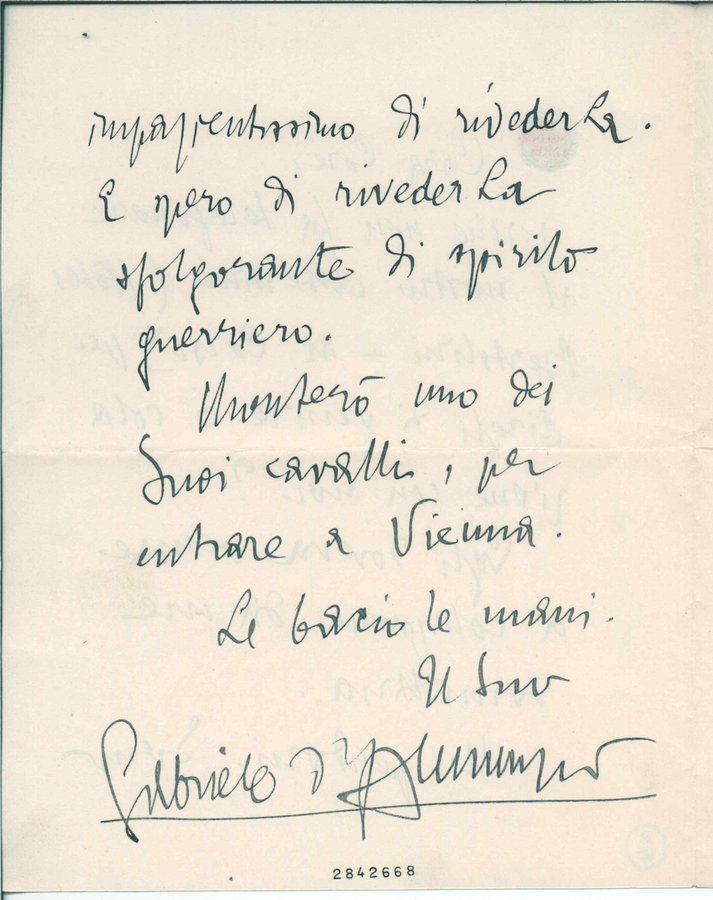 impazientissimo di rivederLa.
E spero di rivederLa
sfolgorante di spirito
guerriero.
Monterò uno dei
Suoi cavalli, per
entrare a Vienna.
Le bacio le mani.
Il Suo
Gabriele d'Annunzio
2842668